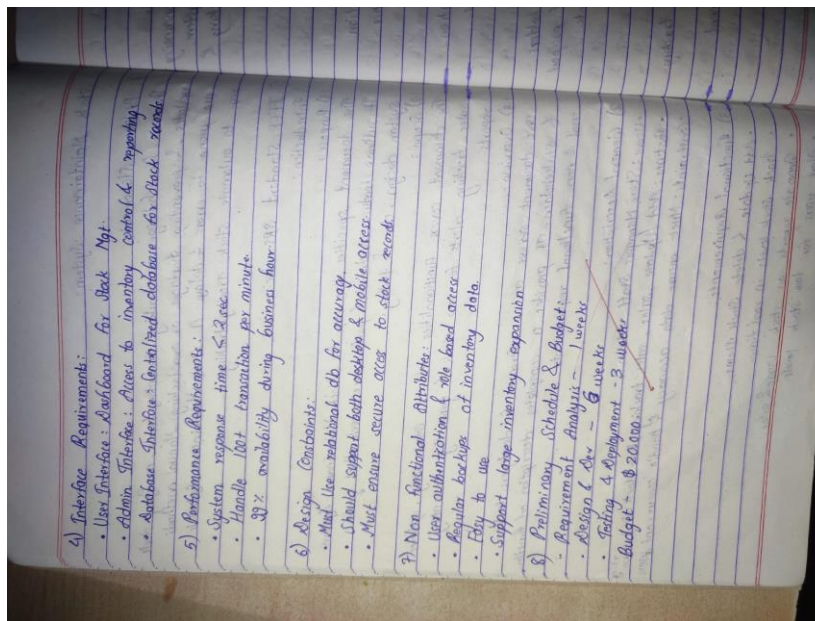 4) Interface Requirements:
• User Interface: Dashboard for Stock Mgt.
• Admin Interface: Access to inventory control & reporting.
• Database Interface: Centralized database for Stock records
5) Performance Requirements:
• System response time < 2 sec
• Handle 100+ transaction per minute.
• 99% availability during business hour
6) Design Constraints:
• Must Use relational db for accuracy
• Should support both desktop & mobile access
• Must ensure secure acces to stock records
7) Non Functional Attributes:
• User authentication & role based access
• Regular backups of inventory data.
• Easy to use
• Support large inventory expansion
8) Preliminary Schedule & Budget:
- Requirement Analysis - 1 weeks
• Design & Dev - 6 weeks
• Testing & Deployment - 3 weeks
Budget - $20,000